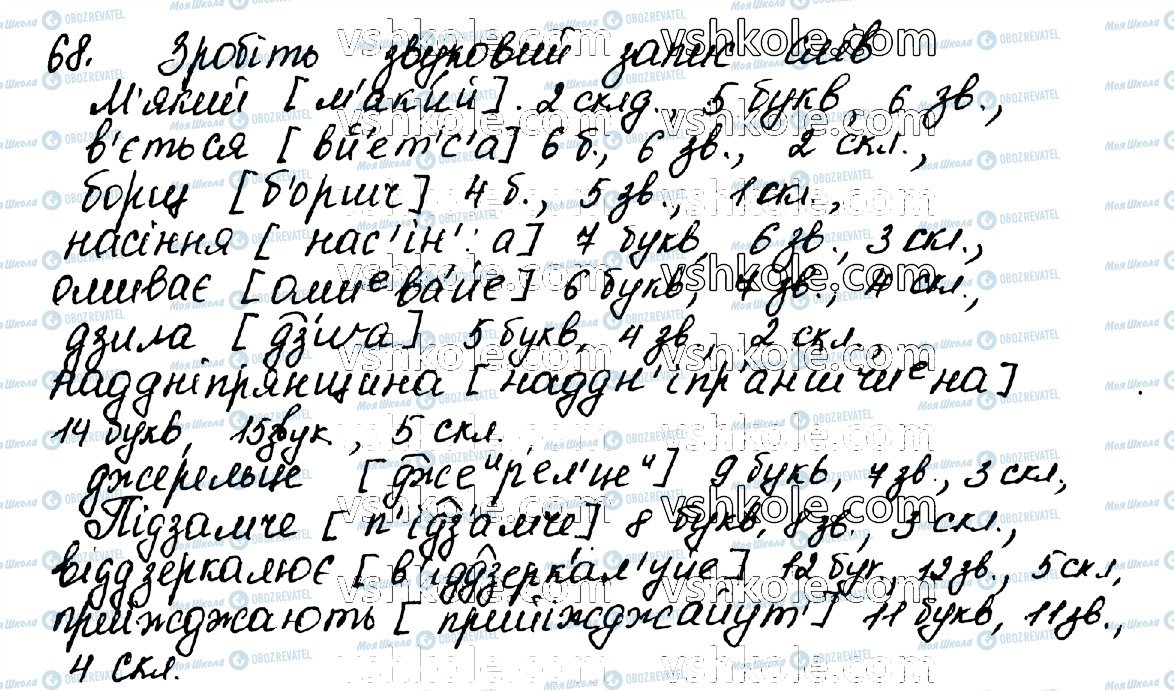 68. Зробіть звуковий запис слів
М'який [м'ак'ий]. 2 склд., 5 букв, 6 зв.,
в'ється [вйет'с'а] 6 б., 6 зв., 2 скл.,
борщ [б'оршч] 4 б., 5 зв., 1 скл.,
насіння [нас'ін':а] 7 букв, 6 зв., 3 скл.,
омиває [омиеваˊйе] 6 букв, 7 зв., 4 скл.,
дзила [дзига] 5 букв, 4 зв., 2 скл.,
наддніпрянщина [наддн'іпр'аншчиена]
14 букв, 15 звук., 5 скл.
джерельце [джеир'ел'цеи] 9 букв, 7 зв., 3 скл.,
Підзамче [п'ідз'амче] 8 букв, 8 зв., 3 скл.,
віддзеркалює [в'іддзерк'ал'уйе] 12 бук, 12 зв., 5 скл,
приїжджають [прийіжджайут'] 11 букв, 11 зв.,
4 скл.
vshkole.com
МояШкола OBOZREVATEL